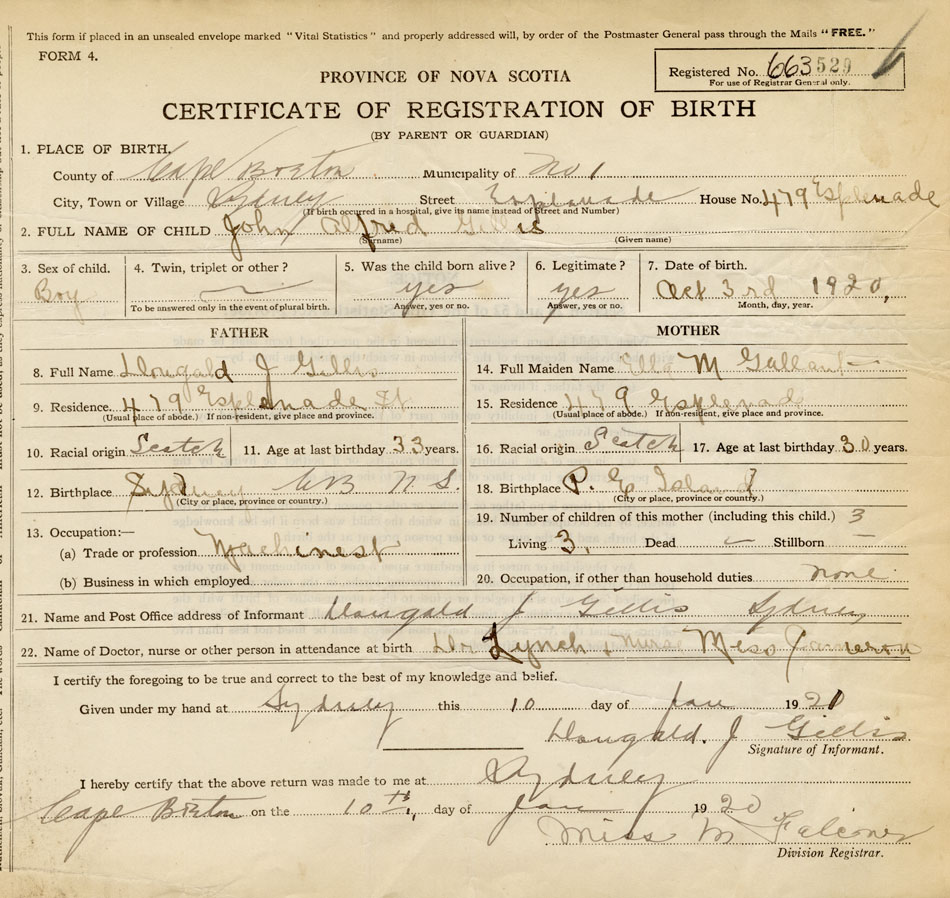 This form if placed in an unsealed envelope marked "Vital Statistics" and properly addressed will, by order of the Postmaster General pass through the Mails "FREE."
FORM 4.
Registered No. 663 529
For use of Registrar General only.
PROVINCE OF NOVA SCOTIA
CERTIFICATE OF REGISTRATION OF BIRTH
(BY PARENT OR GUARDIAN)
1. PLACE OF BIRTH.
County of Cape Breton Municipality of No 1
City, Town or Village Sydney Street Esplanade House No. 479 Esplenade
(If birth occurred in a hospital, give its name instead of Street and Number)
2. FULL NAME OF CHILD John Alfred Gillis
(Surname) (Given name)
3. Sex of child. 4. Twin, triplet or other? 5. Was the child born alive? 6. Legitimate? 7. Date of birth.
Boy yes yes Oct 3rd 1920,
To be answered only in the event of plural birth. Answer, yes or no. Answer, yes or no. Month, day, year.
FATHER
8. Full Name Dougald J Gillis
9. Residence. 479 Esplenade St
(Usual place of abode.) If non-resident, give place and province.
10. Racial origin Scotch 11. Age at last birthday 33 years.
12. Birthplace Sydney CB N S.
(City or place, province or country.)
13. Occupation:—
(a) Trade or profession Machinest
(b) Business in which employed
MOTHER
14. Full Maiden Name Ella M Gallant
15. Residence 479 Esplenade
(Usual place of abode.) If non-resident, give place and province.
16. Racial origin Scotch 17. Age at last birthday 30 years.
18. Birthplace P. E Island
(City or place, province or country.)
19. Number of children of this mother (including this child.) 3
Living 3, Dead – Stillborn –
20. Occupation, if other than household duties none
21. Name and Post Office address of Informant Dougald J Gillis Sydney
22. Name of Doctor, nurse or other person in attendance at birth Dr Lynch + Nurse Miss Cameron
I certify the foregoing to be true and correct to the best of my knowledge and belief.
Given under my hand at Sydney this 10 day of Jan 1921
Dougald. J Gillis
Signature of Informant.
I hereby certify that the above return was made to me at Sydney
Cape Breton on the 10th, day of Jan 1920
Miss M Falconer
Division Registrar.